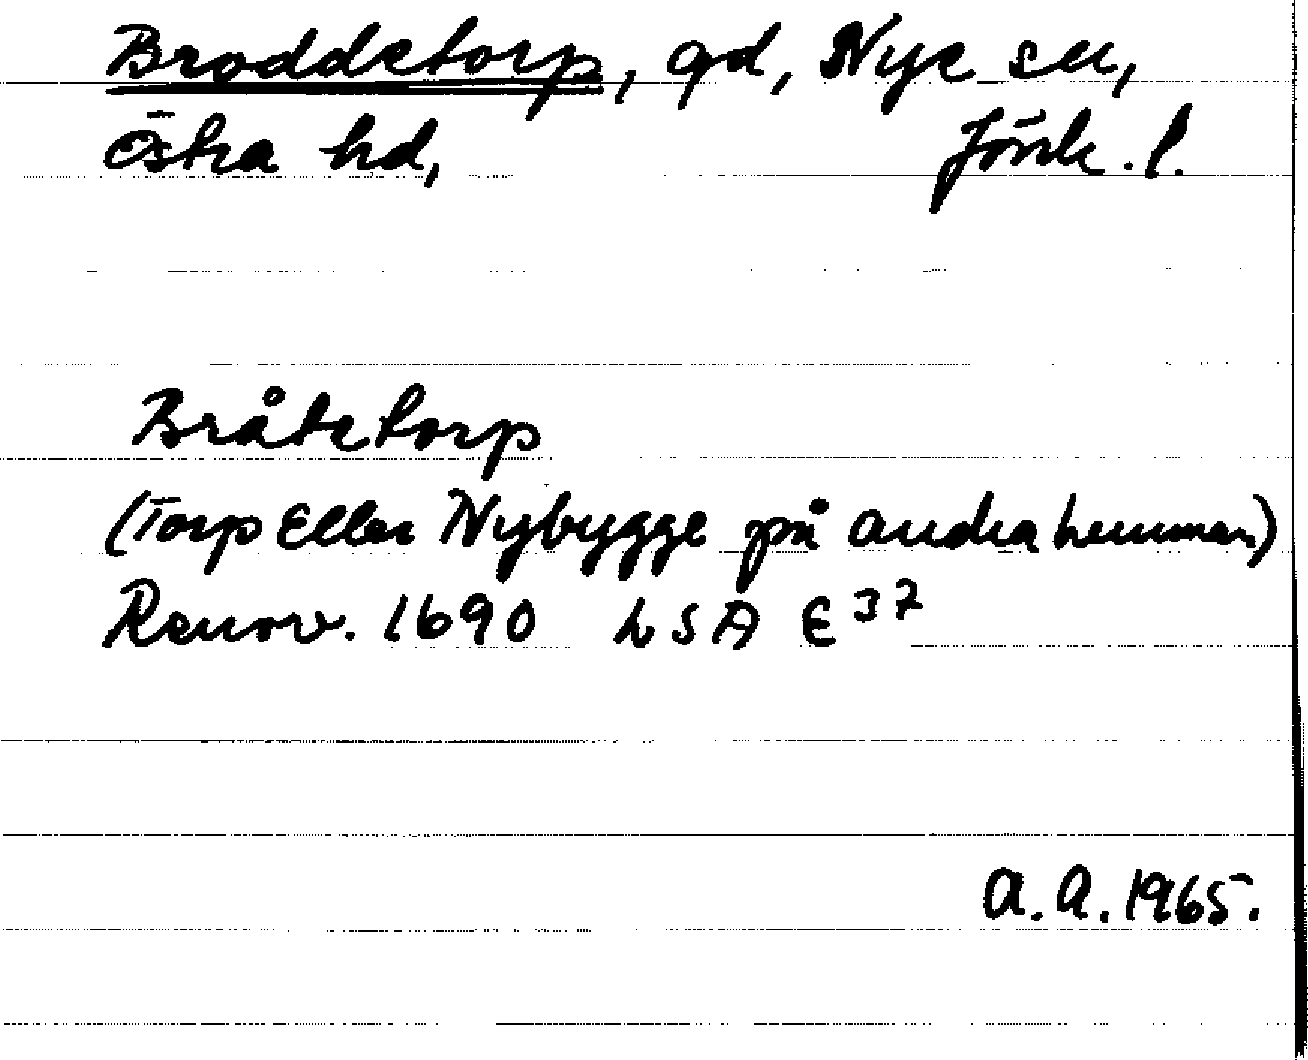 Broddetorp, gd, Nye sn,
Östra hd, Jönk. l.
Bråtetorp
(Torp Eller Nybygge på andra hemman)
Renov. 1690 LSA E37
A.A. 1965.